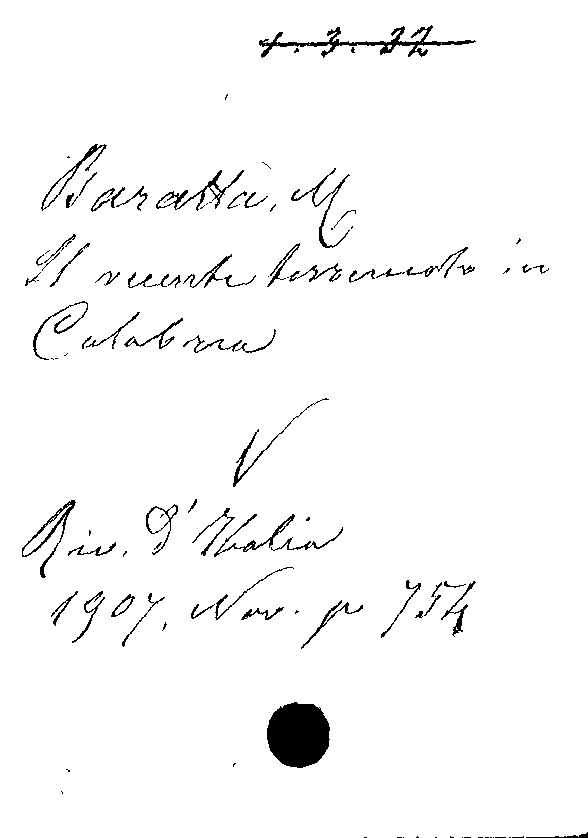 Barattà, M
Il recente terremoto in
Calabria
Riv. D'Italia
1907, Nov. p 754